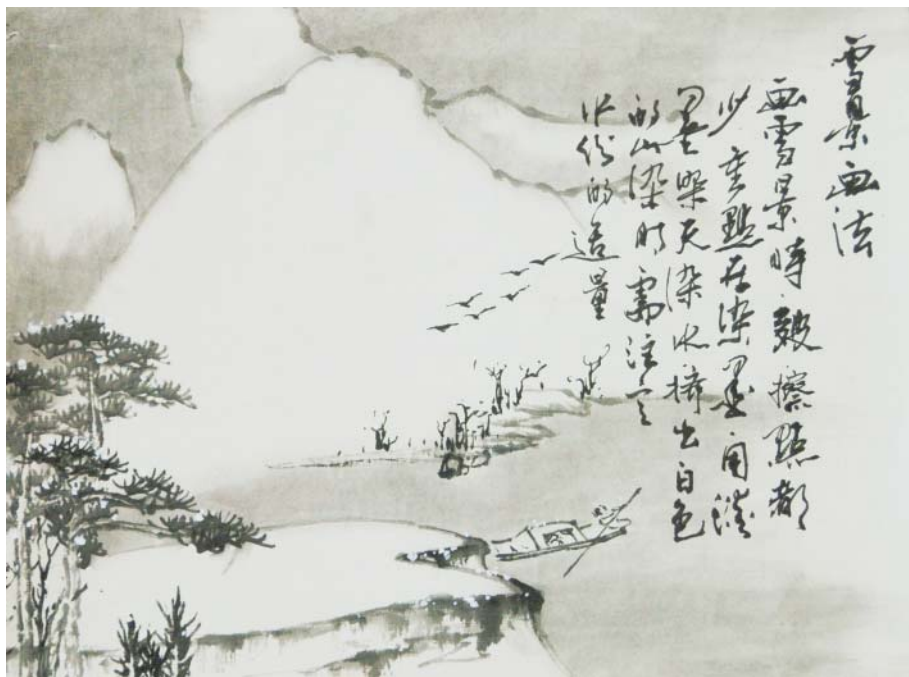 雪景画法
画雪景時皴擦點都
少重點在染墨用淡
墨染天染水擠出白色
的山染時需注意
水份的适量